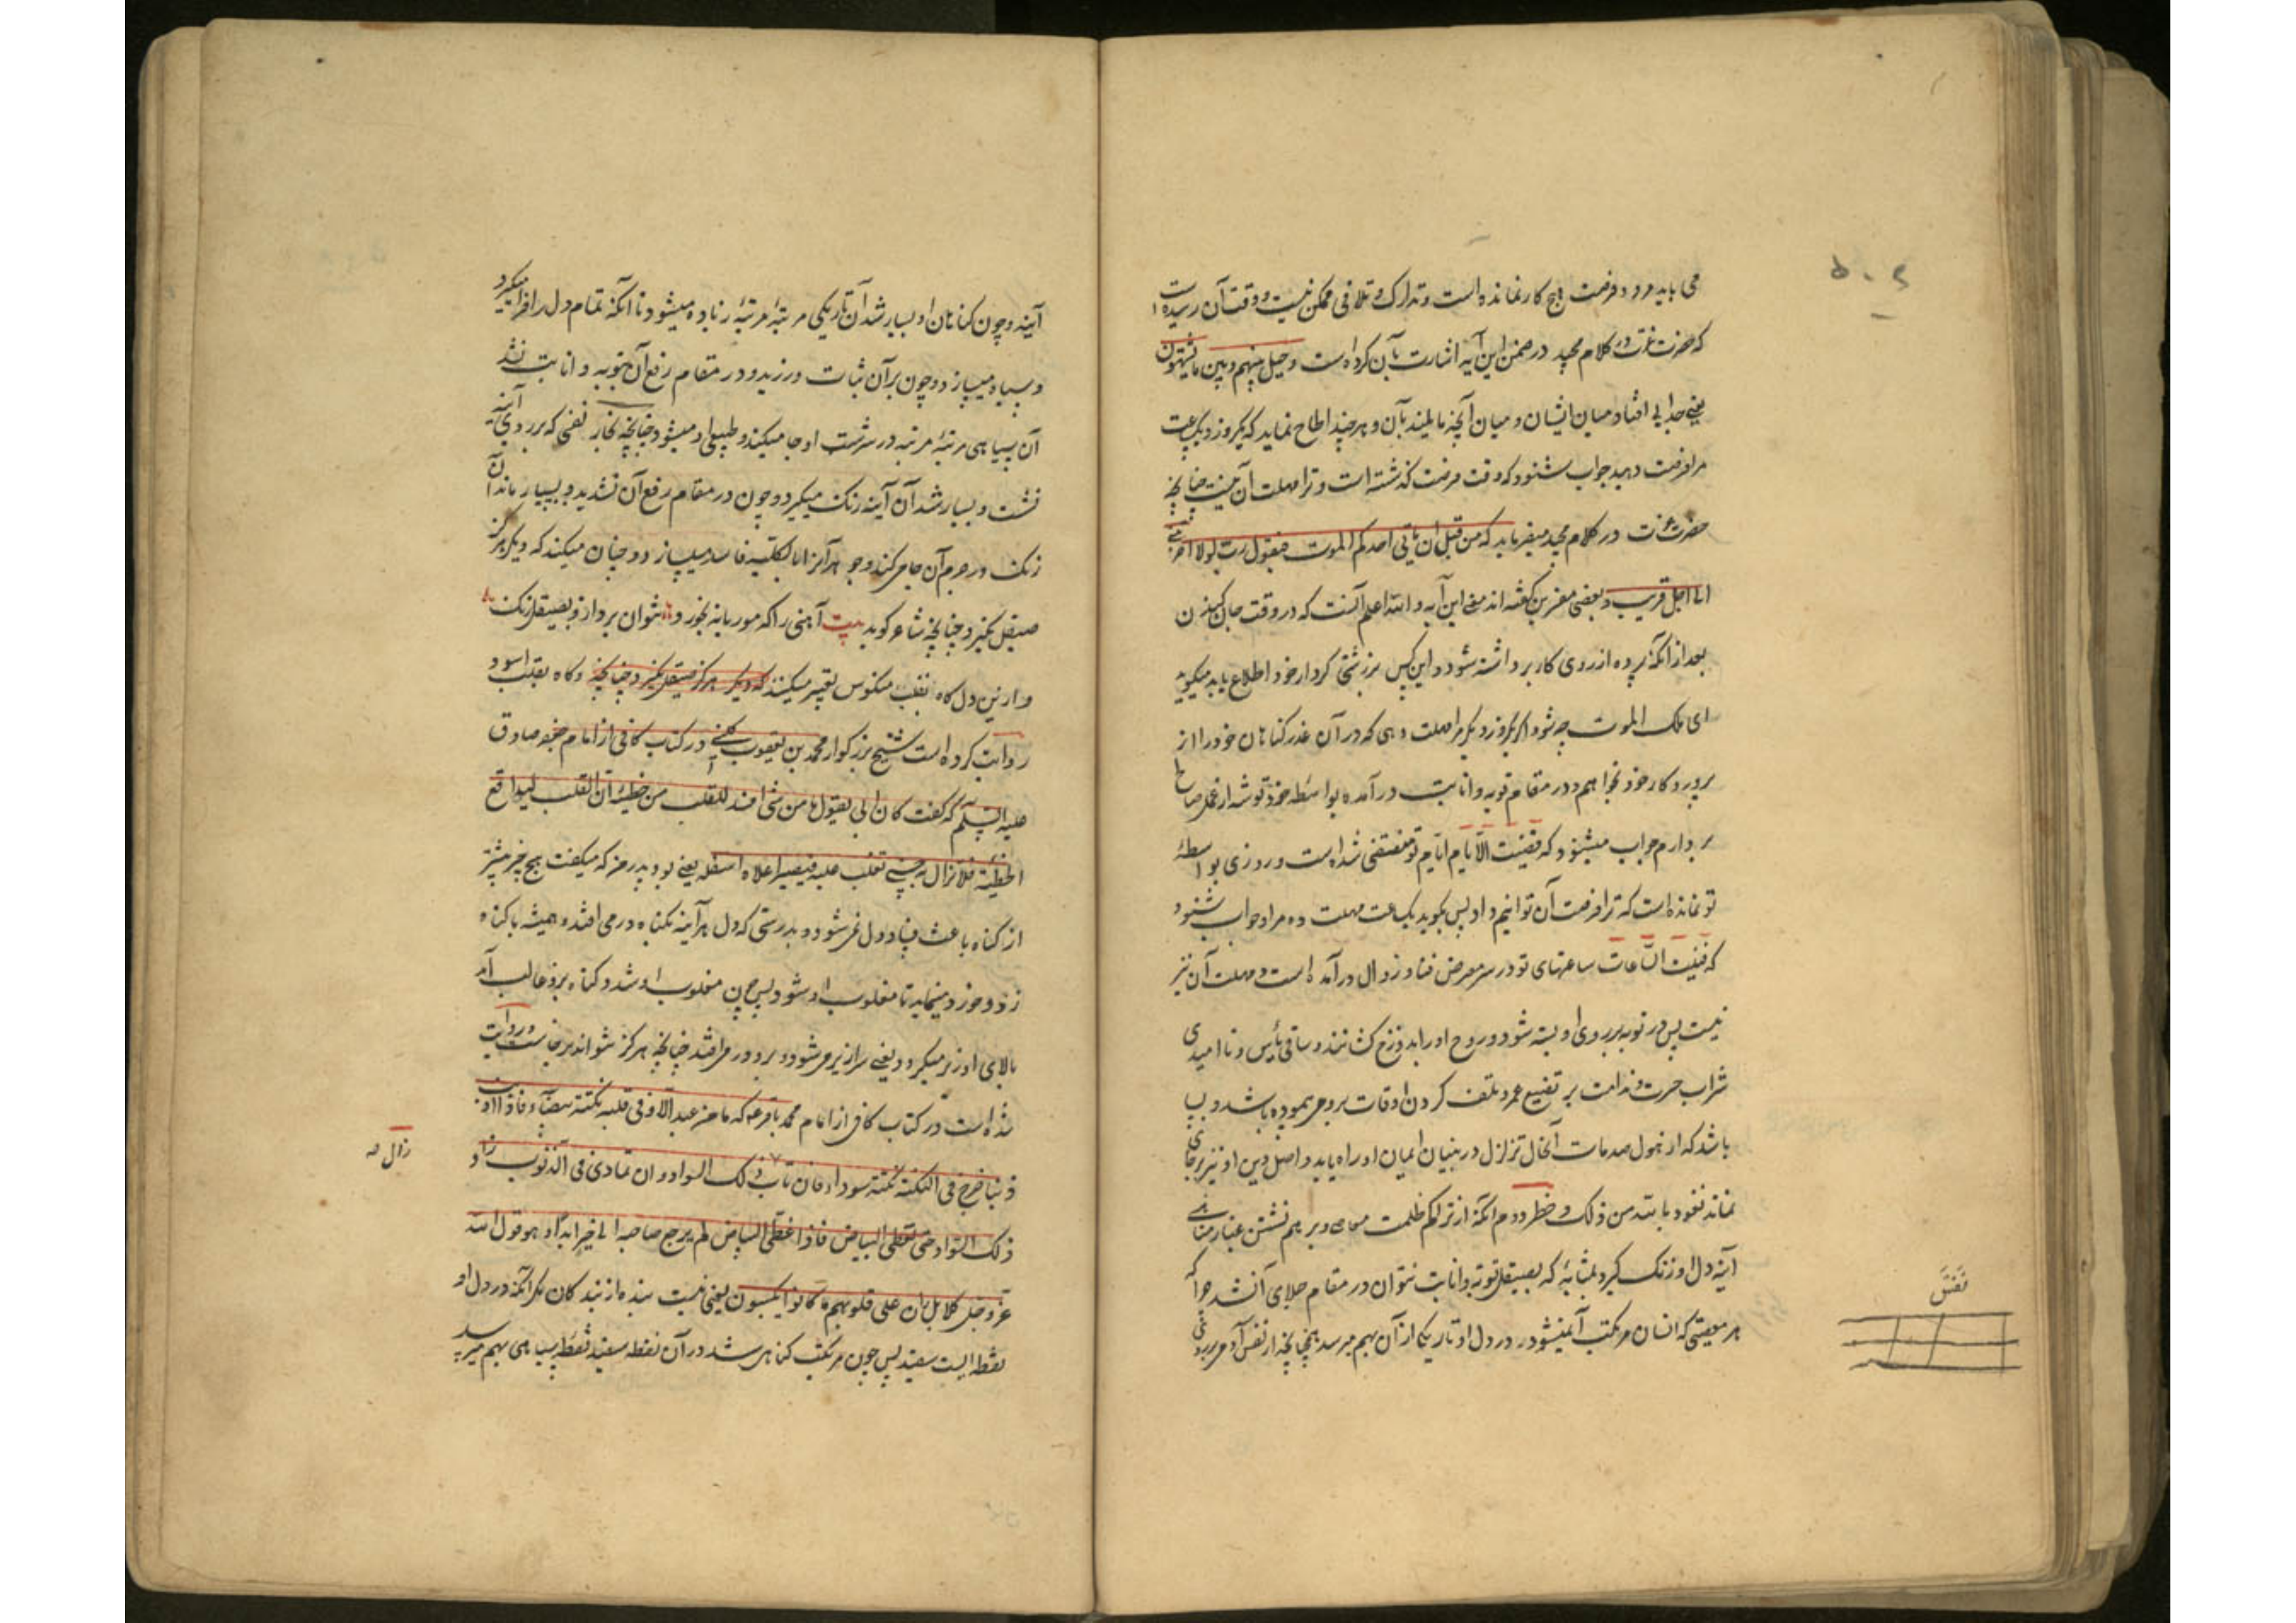 می باید مرد و فرصت هیچ کار نمانده است و تدارک و تلافی ممکن نیست و وقت آن رسیده است
که حضرت عزت در کلام مجید در ضمن این آیه اشارت بآن کرده است و حیل بینهم و بین ما یشتهون
یعنی جدایی افتاد میان ایشان و میان آنچه مایلند بآن و هر چند الحاح نماید که یکروز و یکساعت
مرا فرصت دهید جواب شنود که وقت فرصت گذشته است و ترا مهلت آن نیست چنانچه
حضرت عزت در کلام مجید میفرماید که من قبل ان یاتی احدکم الموت فیقول رب لولا اخرتنی
الی اجل قریب و بعضی مفسرین گفته اند معنی این آیه و الله اعلم آنست که در وقت جان کندن
بعد از آنکه پرده از روی کار برداشته شود و این کس بر زشتی کردار خود اطلاع یابد میگوید
ای ملک الموت چه شود اگر یکروز دیگر مرا مهلت دهی که در آن عذر گناهان خود را از
پروردکار خود بخواهم و در مقام توبه و انابت درآمده بواسطه خود توشه از عمل صالح
بردارم جواب میشنود که فنیت الایام ایام تو منقضی شده است و روزی بواسطهٔ
تو نمانده است که ترا فرصت آن توانیم داد پس بگوید یکساعت مهلت ده مرا و جواب شنود
که فنیت الساعات ساعتهای تو در سر معرض فنا و زوال درآمده است و مهلت آن نیز
نیست پس در توبه بر روی او بسته شود و روح او را بدوزخ کشانند و ساقی یأس و ناامیدی
شراب حسرت و ندامت بر تضییع عمر و تلف کردن اوقات بر وی پیموده باشد و بسا
باشد که از هول صدمات آنحال تزلزل در بنیان ایمان او راه یابد و اصل دین او نیز بر جای
نماند نعوذ بالله من ذلک و خطر دوم آنکه از تراکم ظلمت معاصی و بر هم نشستن غبار مناهی
آینه دل او زنگ گیرد بمثابهٔ که بصیقل توبه و انابت نتوان در مقام جلای آن شد چرا که
هر معصیتی که انسان مرتکب آن میشود در دل او تاریکی از آن بهم میرسد همچنانچه از نفس آدمی بر روی
نفس
آینه و چون گناهان او بسیار شد آن تاریکی مرتبهٔ مرتبهٔ زیاده میشود تا آنکه تمام دل را فرا میگیرد
و سیاه میسازد و چون بر آن ثبات ورزید و در مقام رفع آن بتوبه و انابت نشد
آن سیاهی مرتبهٔ مرتبه در سرشت او جا میکند و طبیعی او میشود چنانچه بخار نفس که بر روی آینه
نشست و بسیار شد آن آینه زنگ میگیرد و چون در مقام رفع آن نشدید و بسیار ماند آن
زنگ در جرم آن جا میکند و جوهر آنرا بالکلیه فاسد میسازد و چنان میکند که دیگر هرگز
صیقل نگیرد چنانچه شاعر گوید بیت آهنی را که موریانه بخورد نتوان برد ازو بصیقل زنگ
و از این دل گاه بقلب منکوس تعبیر میکنند که دیگر هرگز صیقل نگیرد چنانچه و گاه بقلب اسود
روایت کرده است شیخ بزرگوار محمد بن یعقوب کلینی در کتاب کافی از امام جعفر صادق
علیه السلم که گفت کان ابی یقول ما من شی افسد للقلب من خطیئة ان القلب لیواقع
الخطیئة فلا تزال به حتی تغلب علیه فیصیر اعلاه اسفله یعنی بود پدر من که میگفت هیچ چیز بیشتر
از گناه باعث فساد دل نمی شود و بدرستی که دل هر آینه بگناه در می افتد و همیشه با گناه
زد و خورد مینماید تا مغلوب او شود پس چون مغلوب او شد و گناه برو غالب آمد
بالای او زیر میگردد یعنی سرازیر می شود و برو در می افتد چنانچه هرگز نتواند برخاست و روایت
شده است در کتاب کافی از امام محمد باقر ع که ما من عبد الا و فی قلبه نکتة بیضاء فاذا اذنب
ذنبا خرج فی النکتة نکتة سوداء فان تاب ذلک السواد و ان تمادی فی الذنوب زاد
زال صه
ذلک السواد حتی یغطی البیاض فاذا غطی البیاض لم یرجع صاحبه الی خیر ابدا و هو قول الله
عز و جل کلا بل ران علی قلوبهم ما کانوا یکسبون یعنی نیست بنده از بندگان مگر آنکه در دل او
نقطه ایست سفید پس چون مرتکب گناهی شد در آن نقطه سفید نقطه سیاهی بهم میرسد